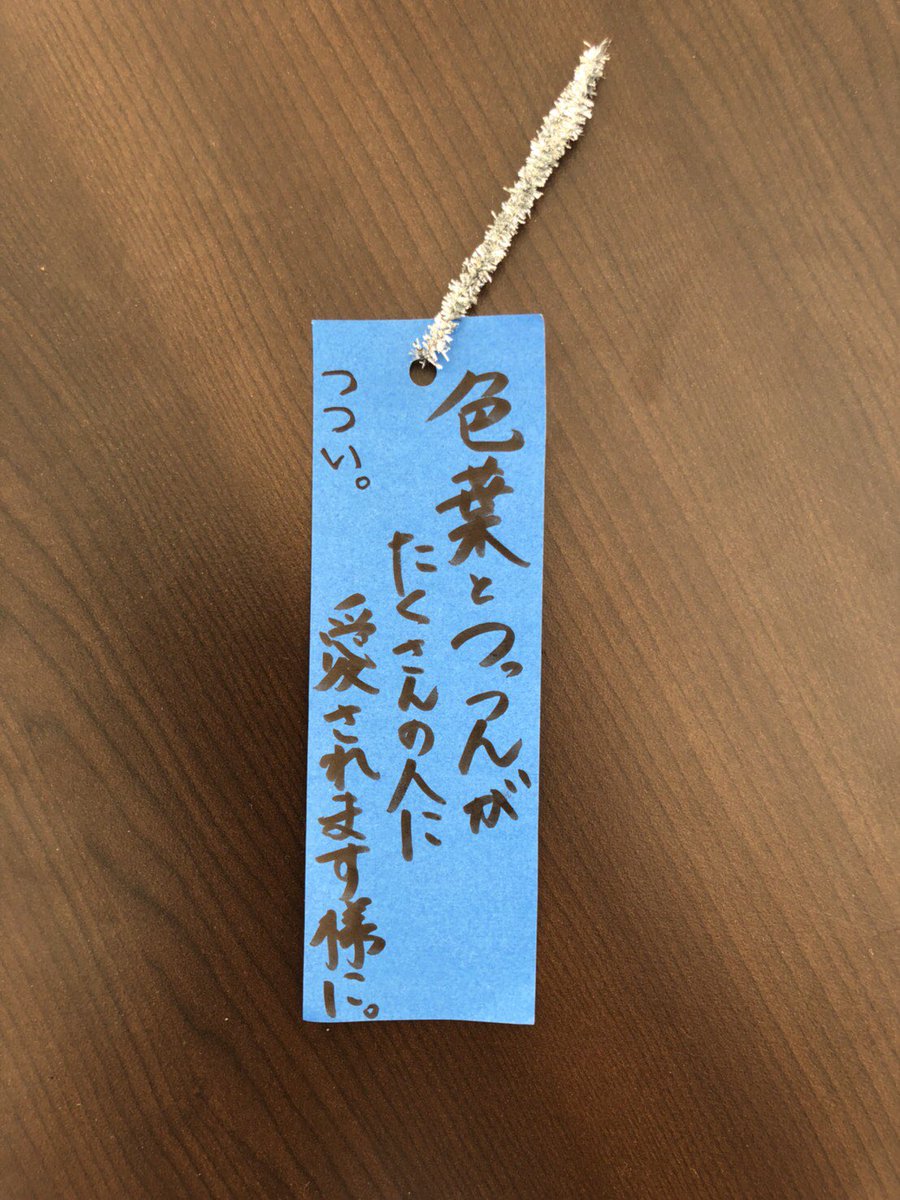 色葉とつっつんが
たくさんの人に
愛されます様に。
つつい。